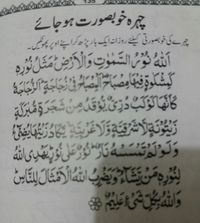 چہرہ خوبصورت ہو جائے
چہرے کی خوبصورتی کیلئے روزانہ ایک بار پڑھ کر اپنے اوپر پھونکیں۔
اَللّٰهُ نُوْرُ السَّمٰوٰتِ وَالْاَرْضِ مَثَلُ نُوْرِهٖ
كَمِشْكٰوةٍ فِيْهَا مِصْبَاحٌ اَلْمِصْبَاحُ فِيْ زُجَاجَةٍ اَلزُّجَاجَةُ
كَاَنَّهَا كَوْكَبٌ دُرِّيٌّ يُّوْقَدُ مِنْ شَجَرَةٍ مُّبٰرَكَةٍ
زَيْتُوْنَةٍ لَّا شَرْقِيَّةٍ وَّلَا غَرْبِيَّةٍ يَّكَادُ زَيْتُهَا يُضِيْٓءُ
وَلَوْ لَمْ تَمْسَسْهُ نَارٌ نُوْرٌ عَلٰى نُوْرٍ يَهْدِى اللّٰهُ
لِنُوْرِهٖ مَنْ يَّشَآءُ وَيَضْرِبُ اللّٰهُ الْاَمْثَالَ لِلنَّاسِ
وَاللّٰهُ بِكُلِّ شَيْءٍ عَلِيْمٌ